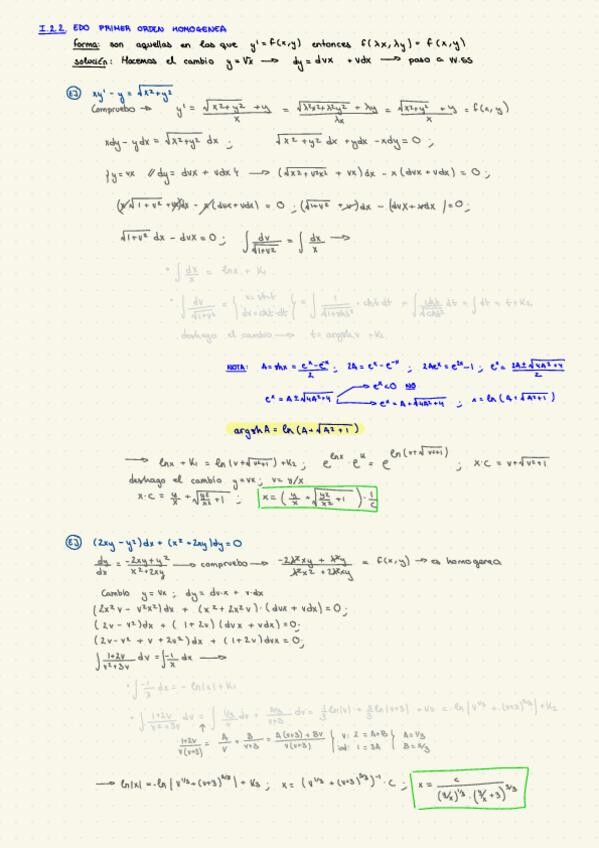 I.2.2. EDO PRIMER ORDEN HOMOGENEA
forma: son aquellas en las que y' = f(x,y) entonces f(λx, λy) = f(x,y)
solución: Hacemos el cambio y = Vx → dy = dvx + vdx → paso a V.ES
EJ xy' - y = √x²+y²
Compruebo → y' = (√x²+y² + y)/x = (√λ²x²+λ²y² + λy)/λx = (√x²+y² + y)/x = f(x,y)
xdy - ydx = √x²+y² dx ; √x²+y² dx + ydx - xdy = 0 ;
{y = vx // dy = dvx + vdx} → (√x²+v²x² + vx)dx - x(dvx + vdx) = 0 ;
(x√1+v² + vx)dx - x(dvx + vdx) = 0 ; (√1+v² + v)dx - (dvx + vdx) = 0 ;
√1+v² dx - dvx = 0 ; ∫ dv/√1+v² = ∫ dx/x →
• ∫ dx/x = lnx + K₁
• ∫ dv/√1+v² = { v = sht dv = cht·dt } = ∫ 1/√1+sh²t · cht dt = ∫ cht/√ch²t dt = ∫ dt = t + K₂
deshago el cambio → t = argsh v + K₂
NOTA: A = shx = (eˣ - e⁻ˣ)/2 ; 2A = eˣ - e⁻ˣ ; 2Aeˣ = e²ˣ - 1 ; eˣ = (2A ± √4A²+4)/2
eˣ = A ± √4A²+4 → eˣ<0 NO
→ eˣ = A + √4A²+4 ; x = ln(A + √A²+1)
argshA = ln(A + √A²+1)
→ lnx + K₁ = ln(v + √v²+1) + K₂ ; e^lnx · e^K = e^ln(v+√v²+1) ; x·C = v + √v²+1
deshago el cambio y = vx ; v = y/x
x·C = y/x + √y²/x² + 1 ; x = (y/x + √y²/x² + 1) · 1/C
EJ (2xy - y²)dx + (x² + 2xy)dy = 0
dy/dx = (-2xy + y²)/(x² + 2xy) → compruebo → (-2λ²xy + λ²y)/(λ²x² + 2λ²xy) = f(x,y) → es homogenea
Cambio y = vx ; dy = dv·x + v·dx
(2x²v - v²x²)dx + (x² + 2x²v)·(dvx + vdx) = 0 ;
(2v - v²)dx + (1+2v)(dvx + vdx) = 0 ;
(2v - v² + v + 2v²)dx + (1+2v)dvx = 0 ;
∫ (1+2v)/(v²+3v) dv = ∫ -1/x dx →
• ∫ -1/x dx = -ln|x| + K₁
• ∫ (1+2v)/(v²+3v) dv = ∫ (1/3)/v dv + (5/3)/(v+3) dv = 1/3 ln|v| + 5/3 ln|v+3| + K₂ = ln|v^1/3 · (v+3)^5/3| + K₂
(1+2v)/(v(v+3)) = A/v + B/(v+3) = (A(v+3) + Bv)/(v(v+3)) { v: 2 = A+B ind: 1 = 3A } { A = 1/3 B = 5/3
→ ln|x| = -ln|v^1/3 + (v+3)^5/3| + K₃ ; x = (v^1/3 + (v+3)^5/3)⁻¹ · C ; x = C/((y/x)^1/3 · (y/x + 3)^5/3)